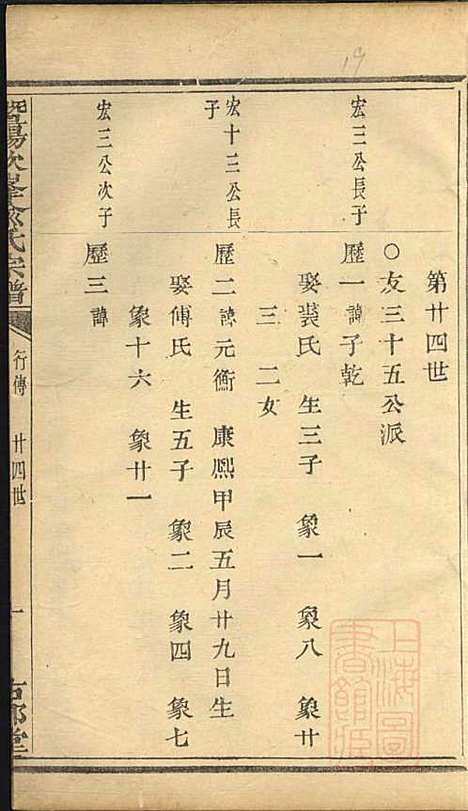 19
第廿四世
○友三十五公派
宏三公長子
歷一 諱子乾
娶裘氏 生三子 象一 象八 象廿
三 二女
宏十三公長
子
歷二 諱元衡 康熙甲辰五月廿九日生
娶傅氏 生五子 象二 象四 象七
象十六 象廿一
宏三公次子
歷三 諱
暨陽次峯俞氏宗譜
行傳 廿四世
一
上海圖
書館藏